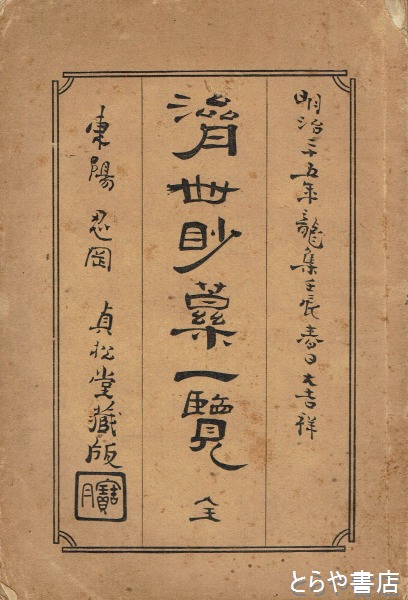 明治二十五年龍集壬辰春日大吉祥
世眇藁一覽 全
東陽 忍岡 貞松堂藏版
寶月
とらや書店